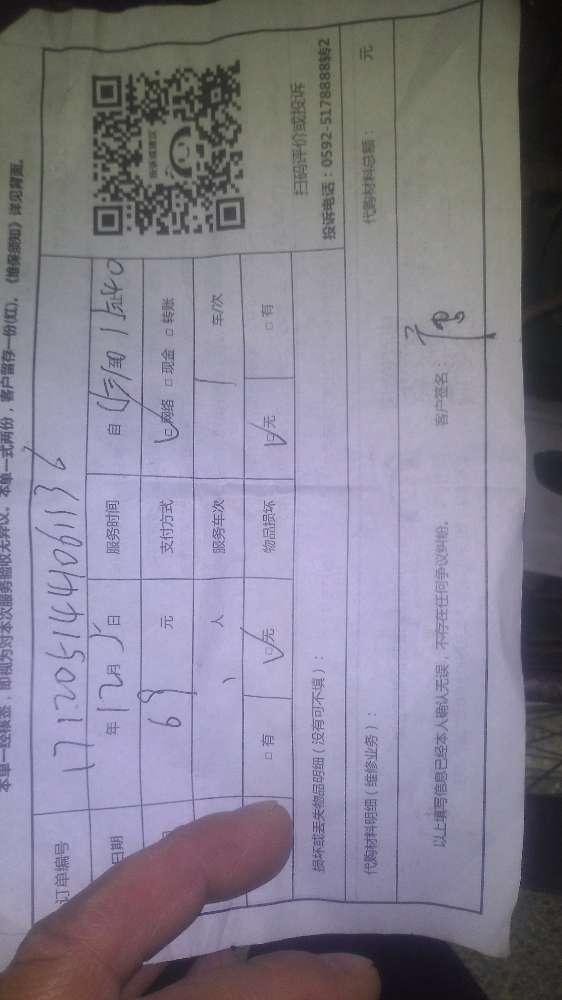 本单一经核签，即视为对本次服务验收无异议。本单一式两份，客户留存一份(红)。《维保须知》详见背面。
订单编号
日期 年 12月5日 服务时间 自
69 元 支付方式 ☑网络 □现金 □转账
人 服务车次 1 车/次
□有 ☑无 物品损坏 ☑无 □有
扫码评价或投诉
投诉电话：0592-5178888转2
损坏或丢失物品明细（没有可不填）：
代购材料明细（维修业务）： 代购材料总额： 元
以上填写信息已经本人确认无误，不存在任何争议纠纷。 客户签名：